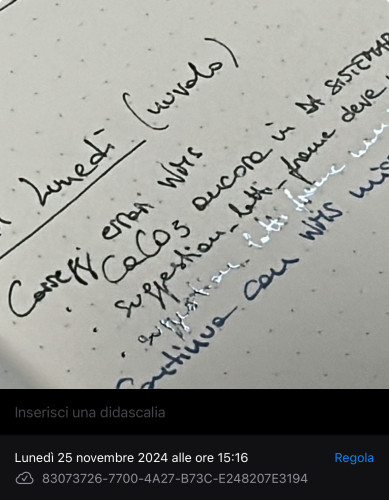 Lunedì (nuvolo)
Correggi errori WMS
· CaCO3 ancora in DA SISTEMAR
· suggestion_lotti_frame deve
· suggestion_lotti_frame
Continua con WMS
Inserisci una didascalia
Lunedì 25 novembre 2024 alle ore 15:16
Regola
83073726-7700-4A27-B73C-E248207E3194